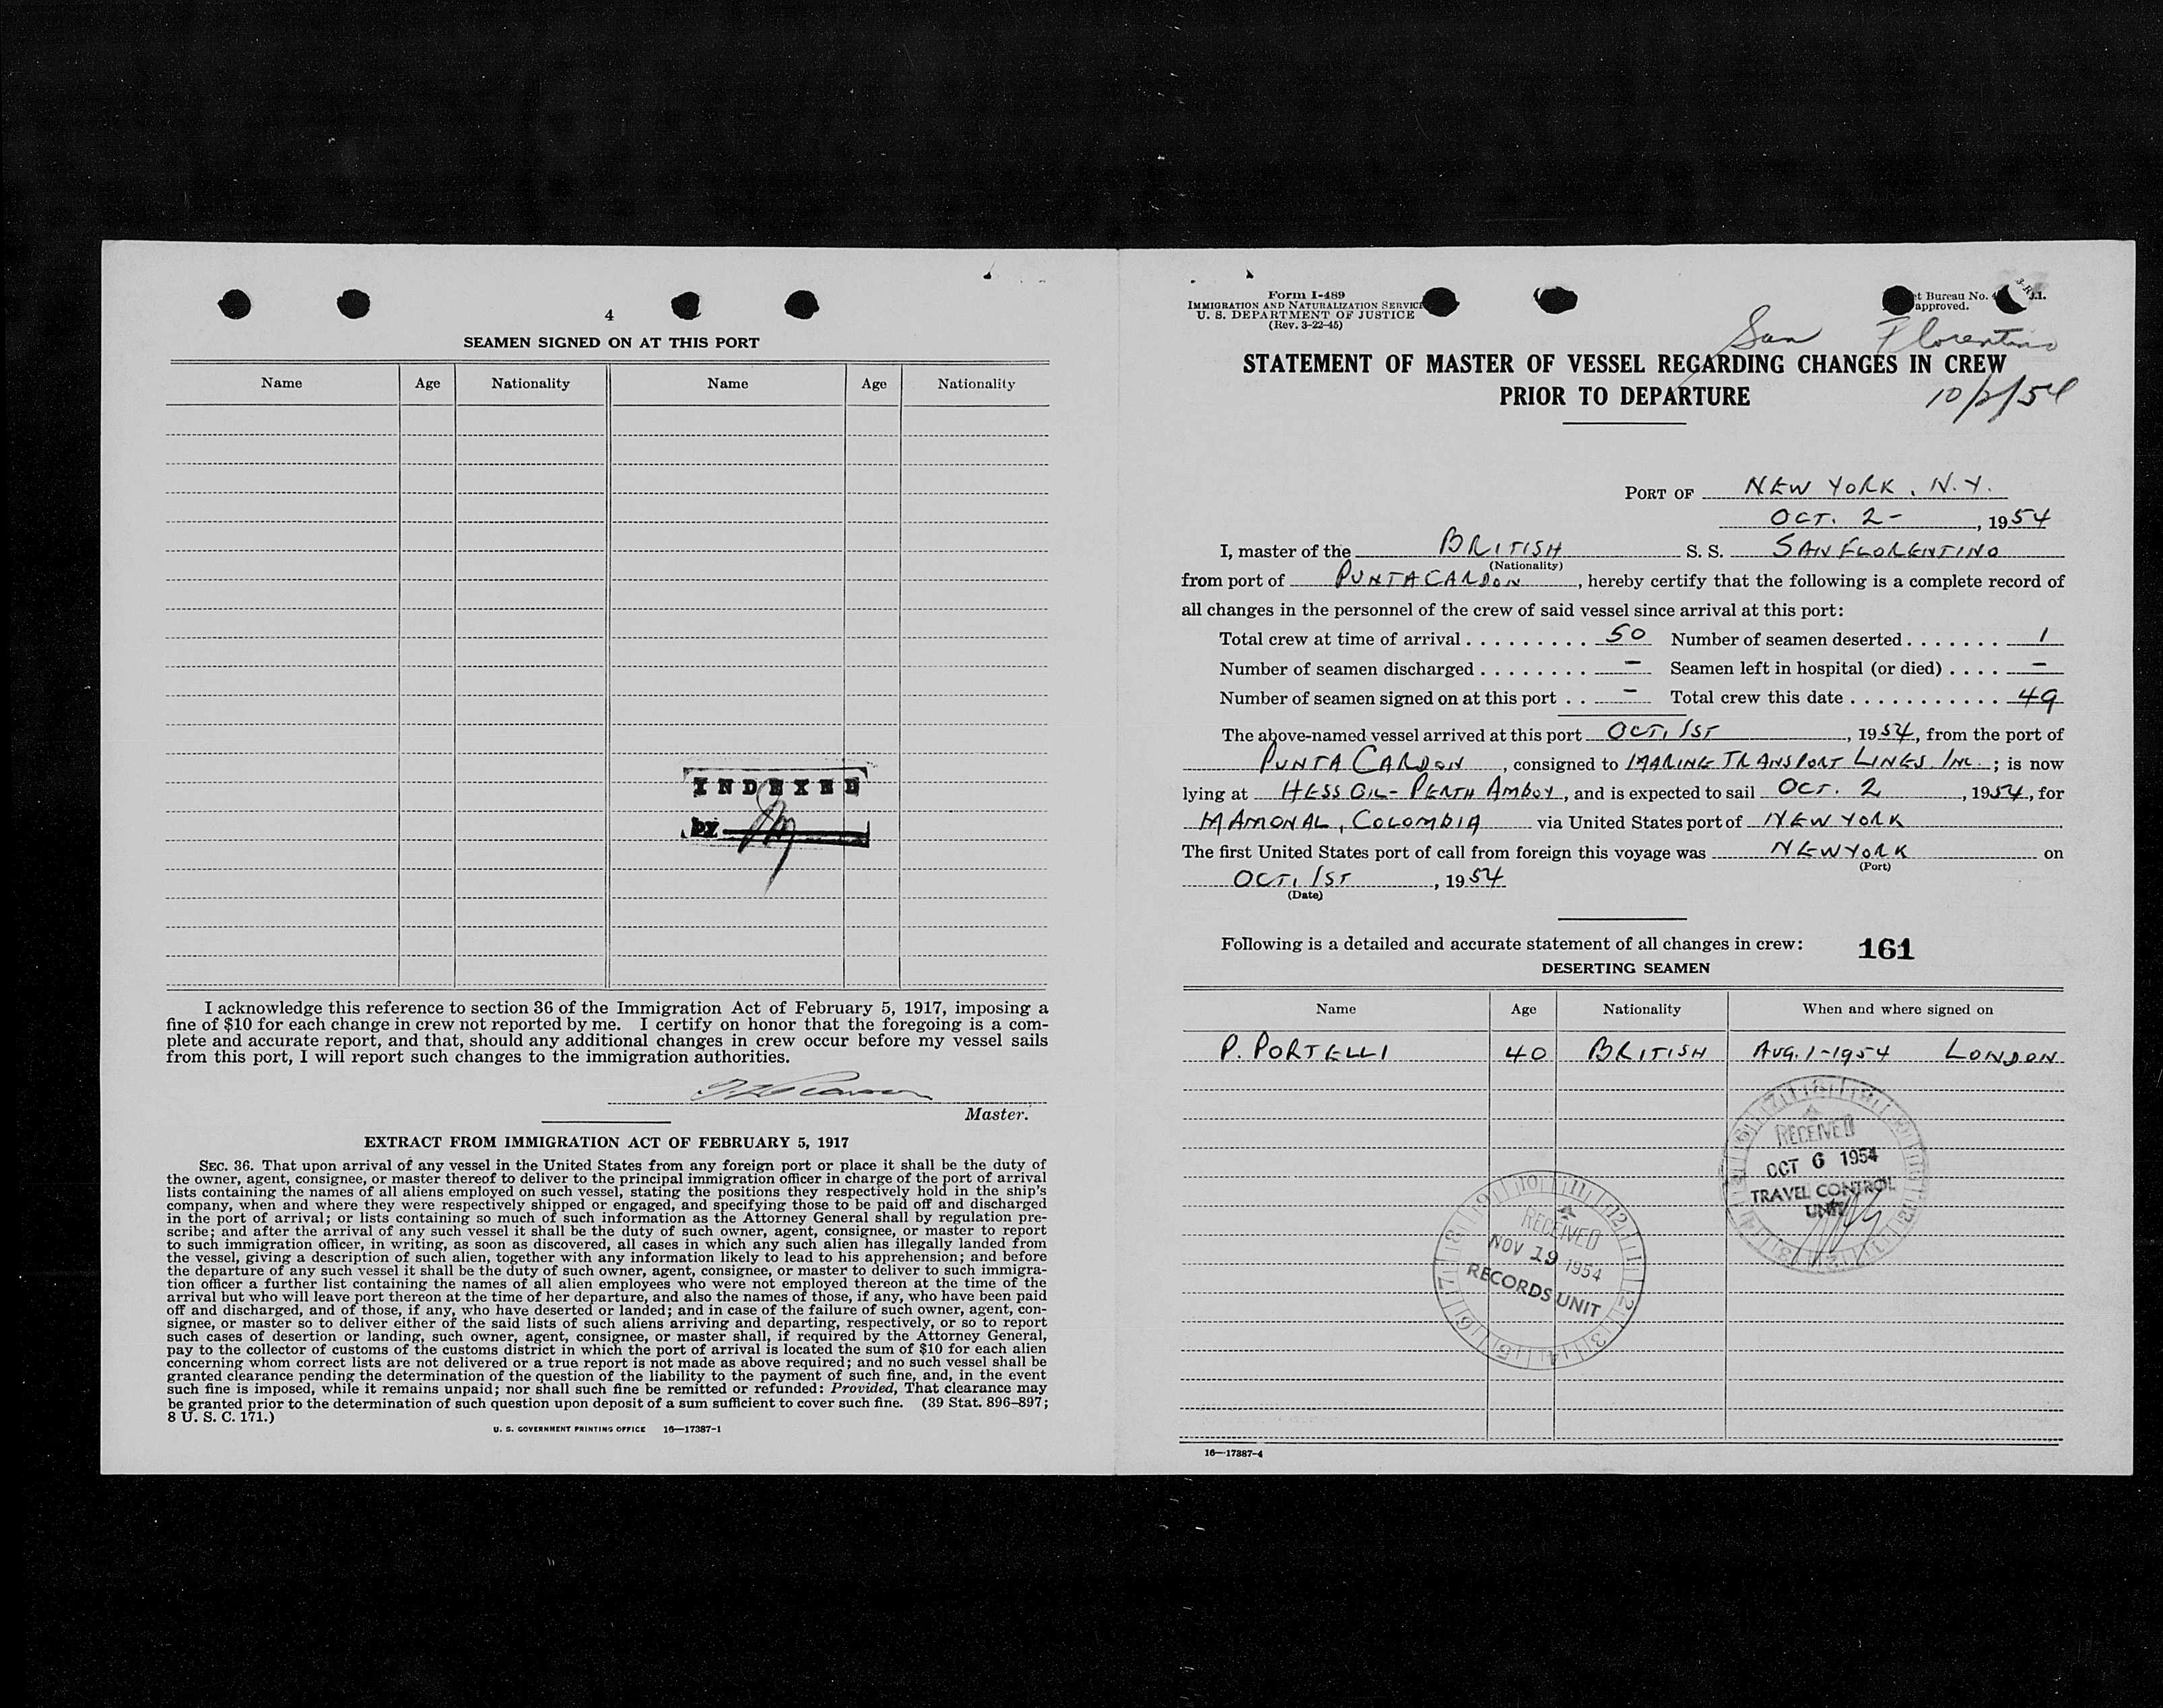 4
SEAMEN SIGNED ON AT THIS PORT
Name Age Nationality Name Age Nationality
INDEXED
by
I acknowledge this reference to section 36 of the Immigration Act of February 5, 1917, imposing a
fine of $10 for each change in crew not reported by me. I certify on honor that the foregoing is a com-
plete and accurate report, and that, should any additional changes in crew occur before my vessel sails
from this port, I will report such changes to the immigration authorities.
Master.
EXTRACT FROM IMMIGRATION ACT OF FEBRUARY 5, 1917
SEC. 36. That upon arrival of any vessel in the United States from any foreign port or place it shall be the duty of
the owner, agent, consignee, or master thereof to deliver to the principal immigration officer in charge of the port of arrival
lists containing the names of all aliens employed on such vessel, stating the positions they respectively hold in the ship's
company, when and where they were respectively shipped or engaged, and specifying those to be paid off and discharged
in the port of arrival; or lists containing so much of such information as the Attorney General shall by regulation pre-
scribe; and after the arrival of any such vessel it shall be the duty of such owner, agent, consignee, or master to report
to such immigration officer, in writing, as soon as discovered, all cases in which any such alien has illegally landed from
the vessel, giving a description of such alien, together with any information likely to lead to his apprehension; and before
the departure of any such vessel it shall be the duty of such owner, agent, consignee, or master to deliver to such immigra-
tion officer a further list containing the names of all alien employees who were not employed thereon at the time of the
arrival but who will leave port thereon at the time of her departure, and also the names of those, if any, who have been paid
off and discharged, and of those, if any, who have deserted or landed; and in case of the failure of such owner, agent, con-
signee, or master so to deliver either of the said lists of such aliens arriving and departing, respectively, or so to report
such cases of desertion or landing, such owner, agent, consignee, or master shall, if required by the Attorney General,
pay to the collector of customs of the customs district in which the port of arrival is located the sum of $10 for each alien
concerning whom correct lists are not delivered or a true report is not made as above required; and no such vessel shall be
granted clearance pending the determination of the question of the liability to the payment of such fine, and, in the event
such fine is imposed, while it remains unpaid; nor shall such fine be remitted or refunded: Provided, That clearance may
be granted prior to the determination of such question upon deposit of a sum sufficient to cover such fine. (39 Stat. 896–897;
8 U. S. C. 171.)
U. S. GOVERNMENT PRINTING OFFICE 16—17387-1
Form I-489
IMMIGRATION AND NATURALIZATION SERVICE
U. S. DEPARTMENT OF JUSTICE
(Rev. 3-22-45)
Bureau No.
approved.
San Florentino
STATEMENT OF MASTER OF VESSEL REGARDING CHANGES IN CREW
PRIOR TO DEPARTURE
10/2/54
PORT OF NEW YORK, N.Y.
OCT. 2-, 1954
I, master of the BRITISH S. S. SAN FLORENTINO
(Nationality)
from port of PUNTA CARDON, hereby certify that the following is a complete record of
all changes in the personnel of the crew of said vessel since arrival at this port:
Total crew at time of arrival . . . . . . . . . . 50 Number of seamen deserted . . . . . . . 1
Number of seamen discharged . . . . . . . . - Seamen left in hospital (or died) . . . . -
Number of seamen signed on at this port . . - Total crew this date . . . . . . . . . . . 49
The above-named vessel arrived at this port OCT. 1ST, 1954, from the port of
PUNTA CARDON, consigned to MARINE TRANSPORT LINES INC.; is now
lying at HESS OIL - PERTH AMBOY, and is expected to sail OCT. 2, 1954, for
MAMONAL, COLOMBIA via United States port of NEW YORK.
The first United States port of call from foreign this voyage was NEW YORK on
(Port)
OCT. 1ST, 1954
(Date)
Following is a detailed and accurate statement of all changes in crew: 161
DESERTING SEAMEN
Name Age Nationality When and where signed on
P. PORTELLI 40 BRITISH AUG. 1-1954 LONDON
RECEIVED
OCT 6 1954
TRAVEL CONTROL
UNIT
RECEIVED
NOV 19 1954
RECORDS UNIT
16—17387-4